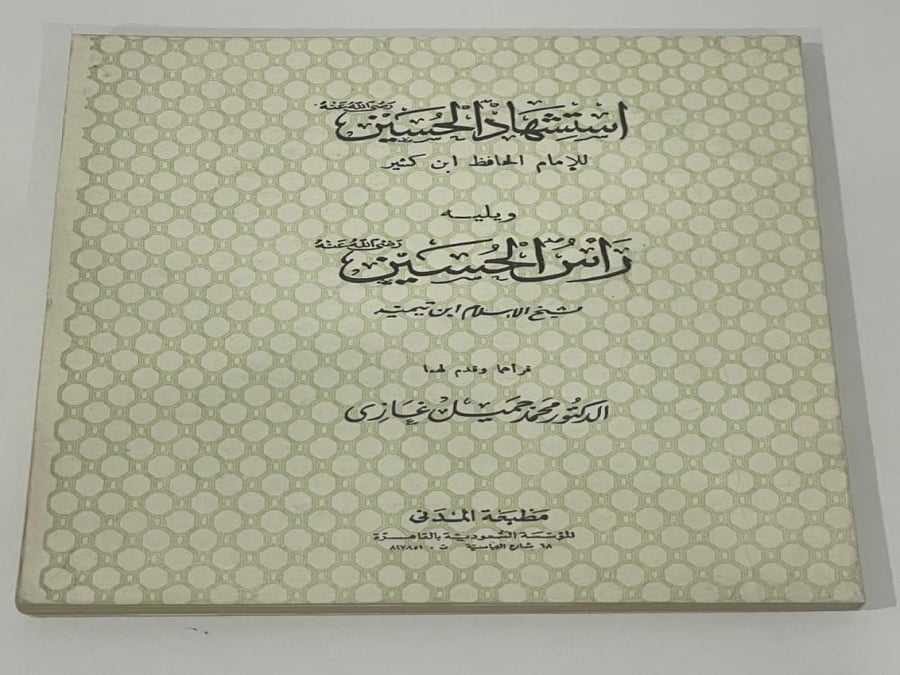 استشهاد الحسين رضي الله عنه
للإمام الحافظ ابن كثير
ويليه
رأس الحسين رضي الله عنه
لشيخ الإسلام ابن تيمية
قرأهما وقدم لهما
الدكتور محمد جميل غازي
مطبعة المدني
المؤسسة السعودية بالقاهرة
٦٨ شارع العباسية ت ٨٢٧٨٥١